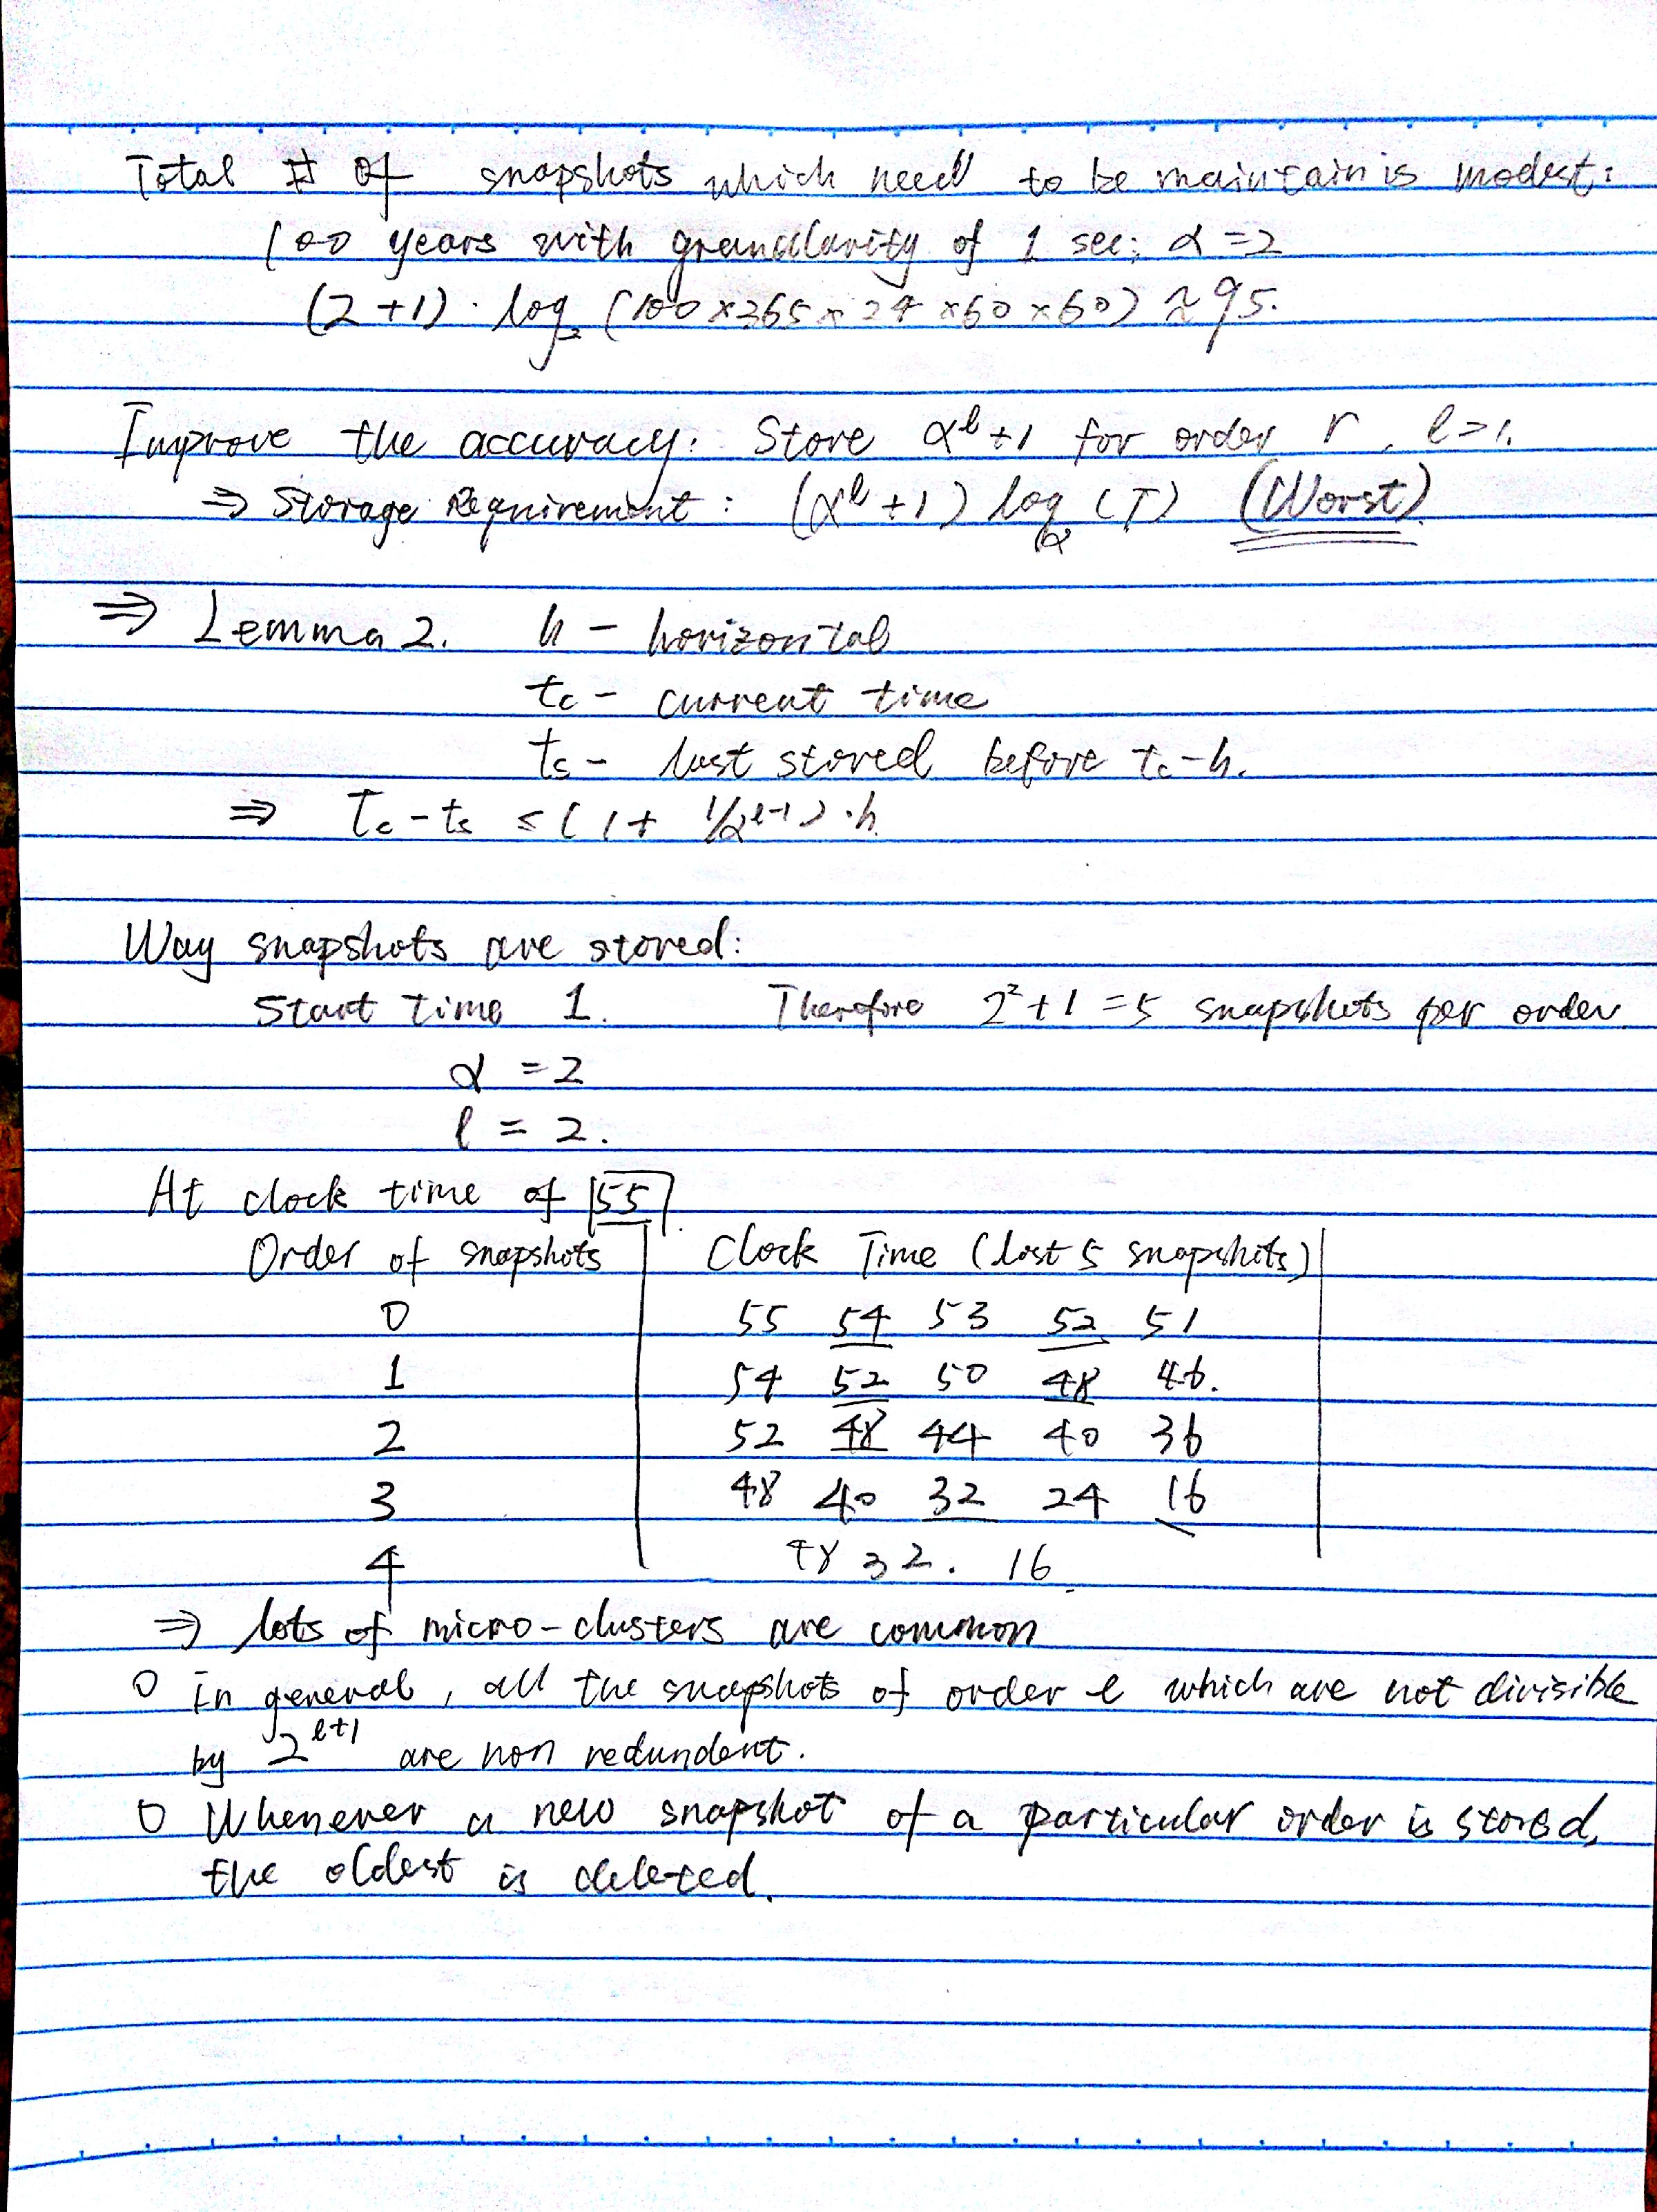 Total # of snapshots which need to be maintain is modest:
100 years with granularity of 1 sec; α = 2
(2+1) · log₂ (100×365×24×60×60) ≈ 95.
Improve the accuracy: Store α^l + 1 for order r, l > 1.
⇒ Storage Requirement : (α^l + 1) log_α (T) (Worst)
⇒ Lemma 2. h - horizontal
tc - current time
ts - last stored before tc - h.
⇒ Tc - ts ≤ ( 1 + 1/α^(l-1) ) · h
Way snapshots are stored:
Start Time 1. Therefore 2² + 1 = 5 snapshots per order.
α = 2
l = 2.
At clock time of 55.
Order of snapshots Clock Time (last 5 snapshots)
0 55 54 53 52 51
1 54 52 50 48 46.
2 52 48 44 40 36
3 48 40 32 24 16
4 48 32. 16
⇒ lots of micro-clusters are common
o In general, all the snapshots of order l which are not divisible
by 2^(l+1) are non redundent.
o Whenever a new snapshot of a particular order is stored,
the oldest is deleted.